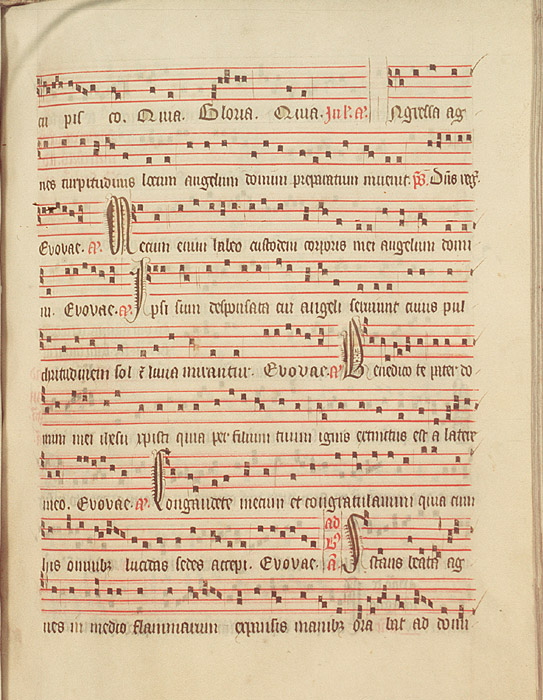 cu pis co. Q uia. Gloria. Q uia. In l. a. Ngressa ag
nes turpitudinis locum angelum domini preparatum inuenit. ps. Dns reg.
Evovae. a. Mecum enim habeo custodem corporis mei angelum domi
ni. Evovae. a. Ipsi sum desponsata cui angeli seruiunt cuius pul
chritudinem sol et luna mirantur. Evovae. a. Benedico te pater do
mini mei iesu xpisti quia per filium tuum ignis extinctus est a latere
meo. Evovae. a. Congaudete mecum et congratulamini quia cum
his omnibz lucidas sedes accepi. Evovae. ad B a Stans beata ag
nes in medio flammarum expansis manibz ora bat ad domi